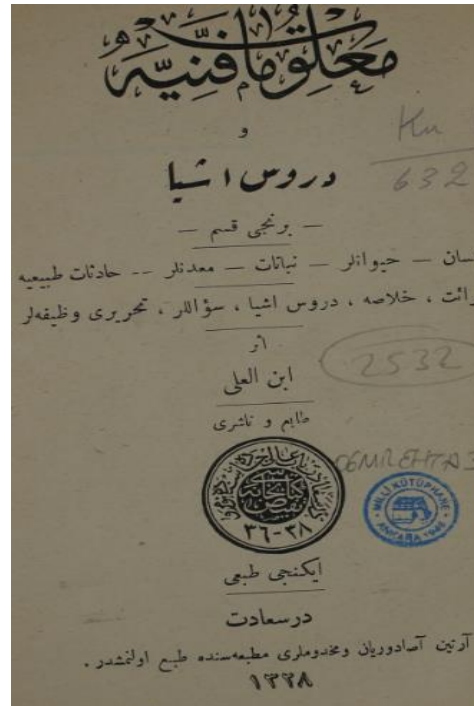 معلومات فنیه
و
دروس اشیا
— برنجی قسم —
سان — حیوانلر — نباتات — معدنلر -- حادثات طبیعیه
رائت ، خلاصه ، دروس اشیا ، سؤاللر ، تحریری وظیفه‌لر
اثر
ابن العلی
طابع و ناشری
٣٦-٣٨
ایکنجی طبعی
درسعادت
آرتین آصادوریان ومخدوملری مطبعه‌سنده طبع اولنمشدر .
١٣٢٨
Ku
632
2532
MİLLİ KÜTÜPHANE
ANKARA 1946